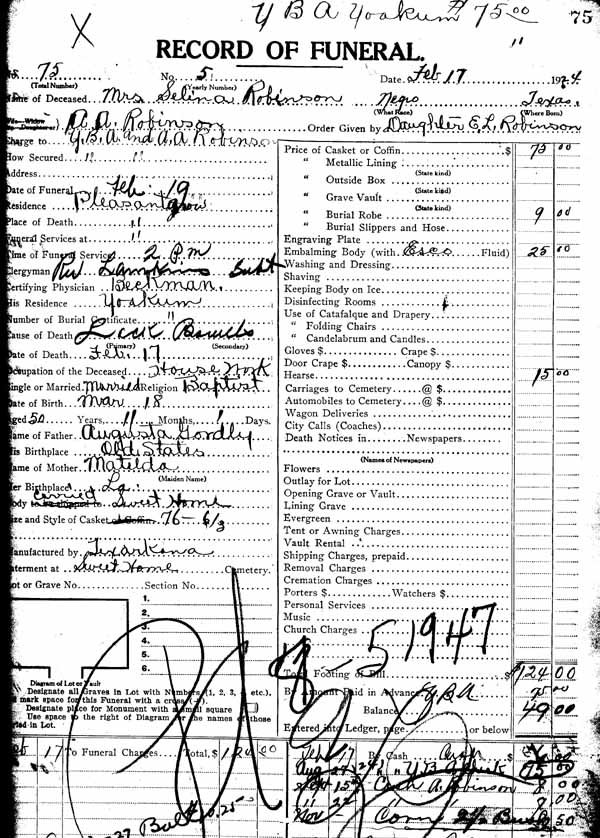 Y B A Yoakum # 75.00
75
X
RECORD OF FUNERAL.
"
75 (Total Number) No. 5 (Yearly Number) Date Feb 17 1924
Name of Deceased Mrs Selina Robinson Negro (What Race) Texas. (Where Born)
A. A. Robinson Order Given by Daughter E.L. Robinson
Charge to Y.B.A. and A.A. Robinson
How Secured " "
Address
Date of Funeral Feb. 19
Residence Pleasant Grove
Place of Death "
Funeral Services at "
Time of Funeral Service 2 P.M
Clergyman Rev
Certifying Physician Beckman.
His Residence Yoakum
Number of Burial Certificate "
Cause of Death Lock Bowels
(Primary) (Secondary)
Date of Death Feb. 17
Occupation of the Deceased House Work
Single or Married Married Religion Baptist
Date of Birth Mar. 18
Aged 50 Years, 11 Months, 1 Days.
Name of Father Augusta Gordly
His Birthplace Old States
Name of Mother Matilda
(Maiden Name)
Her Birthplace La.
Body carried to be shipped to Sweet Home
Size and Style of Casket or Coffin 76 - 6/3
Manufactured by Texarkana
Interment at Sweet Home Cemetery.
Lot or Grave No. Section No.
1.
2.
3.
4.
5.
6.
Diagram of Lot or Vault
Designate all Graves in Lot with Numbers (1, 2, 3, etc.).
mark space for this Funeral with a cross (+).
Designate place for Monument with a small square
Use space to the right of Diagram for the names of those
buried in Lot.
Price of Casket or Coffin $ 75 00
" Metallic Lining
(State kind)
" Outside Box
(State kind)
" Grave Vault
(State kind)
" Burial Robe 9 00
" Burial Slippers and Hose
Engraving Plate
Embalming Body (with Esco Fluid) 25 00
Washing and Dressing
Shaving
Keeping Body on Ice
Disinfecting Rooms
Use of Catafalque and Drapery
" Folding Chairs
" Candelabrum and Candles
Gloves $ Crape $
Door Crape $ Canopy $
Hearse 15 00
Carriages to Cemetery @ $
Automobiles to Cemetery @ $
Wagon Deliveries
City Calls (Coaches)
Death Notices in Newspapers
(Names of Newspapers)
Flowers
Outlay for Lot
Opening Grave or Vault
Lining Grave
Evergreen
Tent or Awning Charges
Vault Rental
Shipping Charges, prepaid
Removal Charges
Cremation Charges
Porters $ Watchers $
Personal Services
Music
Church Charges
5 1947
Total Footing of Bill $ 124 00
By Amount Paid in Advance Y.B.A 75 00
Balance 49 00
Entered into Ledger, page or below
17 To Funeral Charges Total, $ 124 00
Feb 17 By Cash
Aug Y B A 75 00
Sept 15 Cash A. Robinson 8 00
Nov